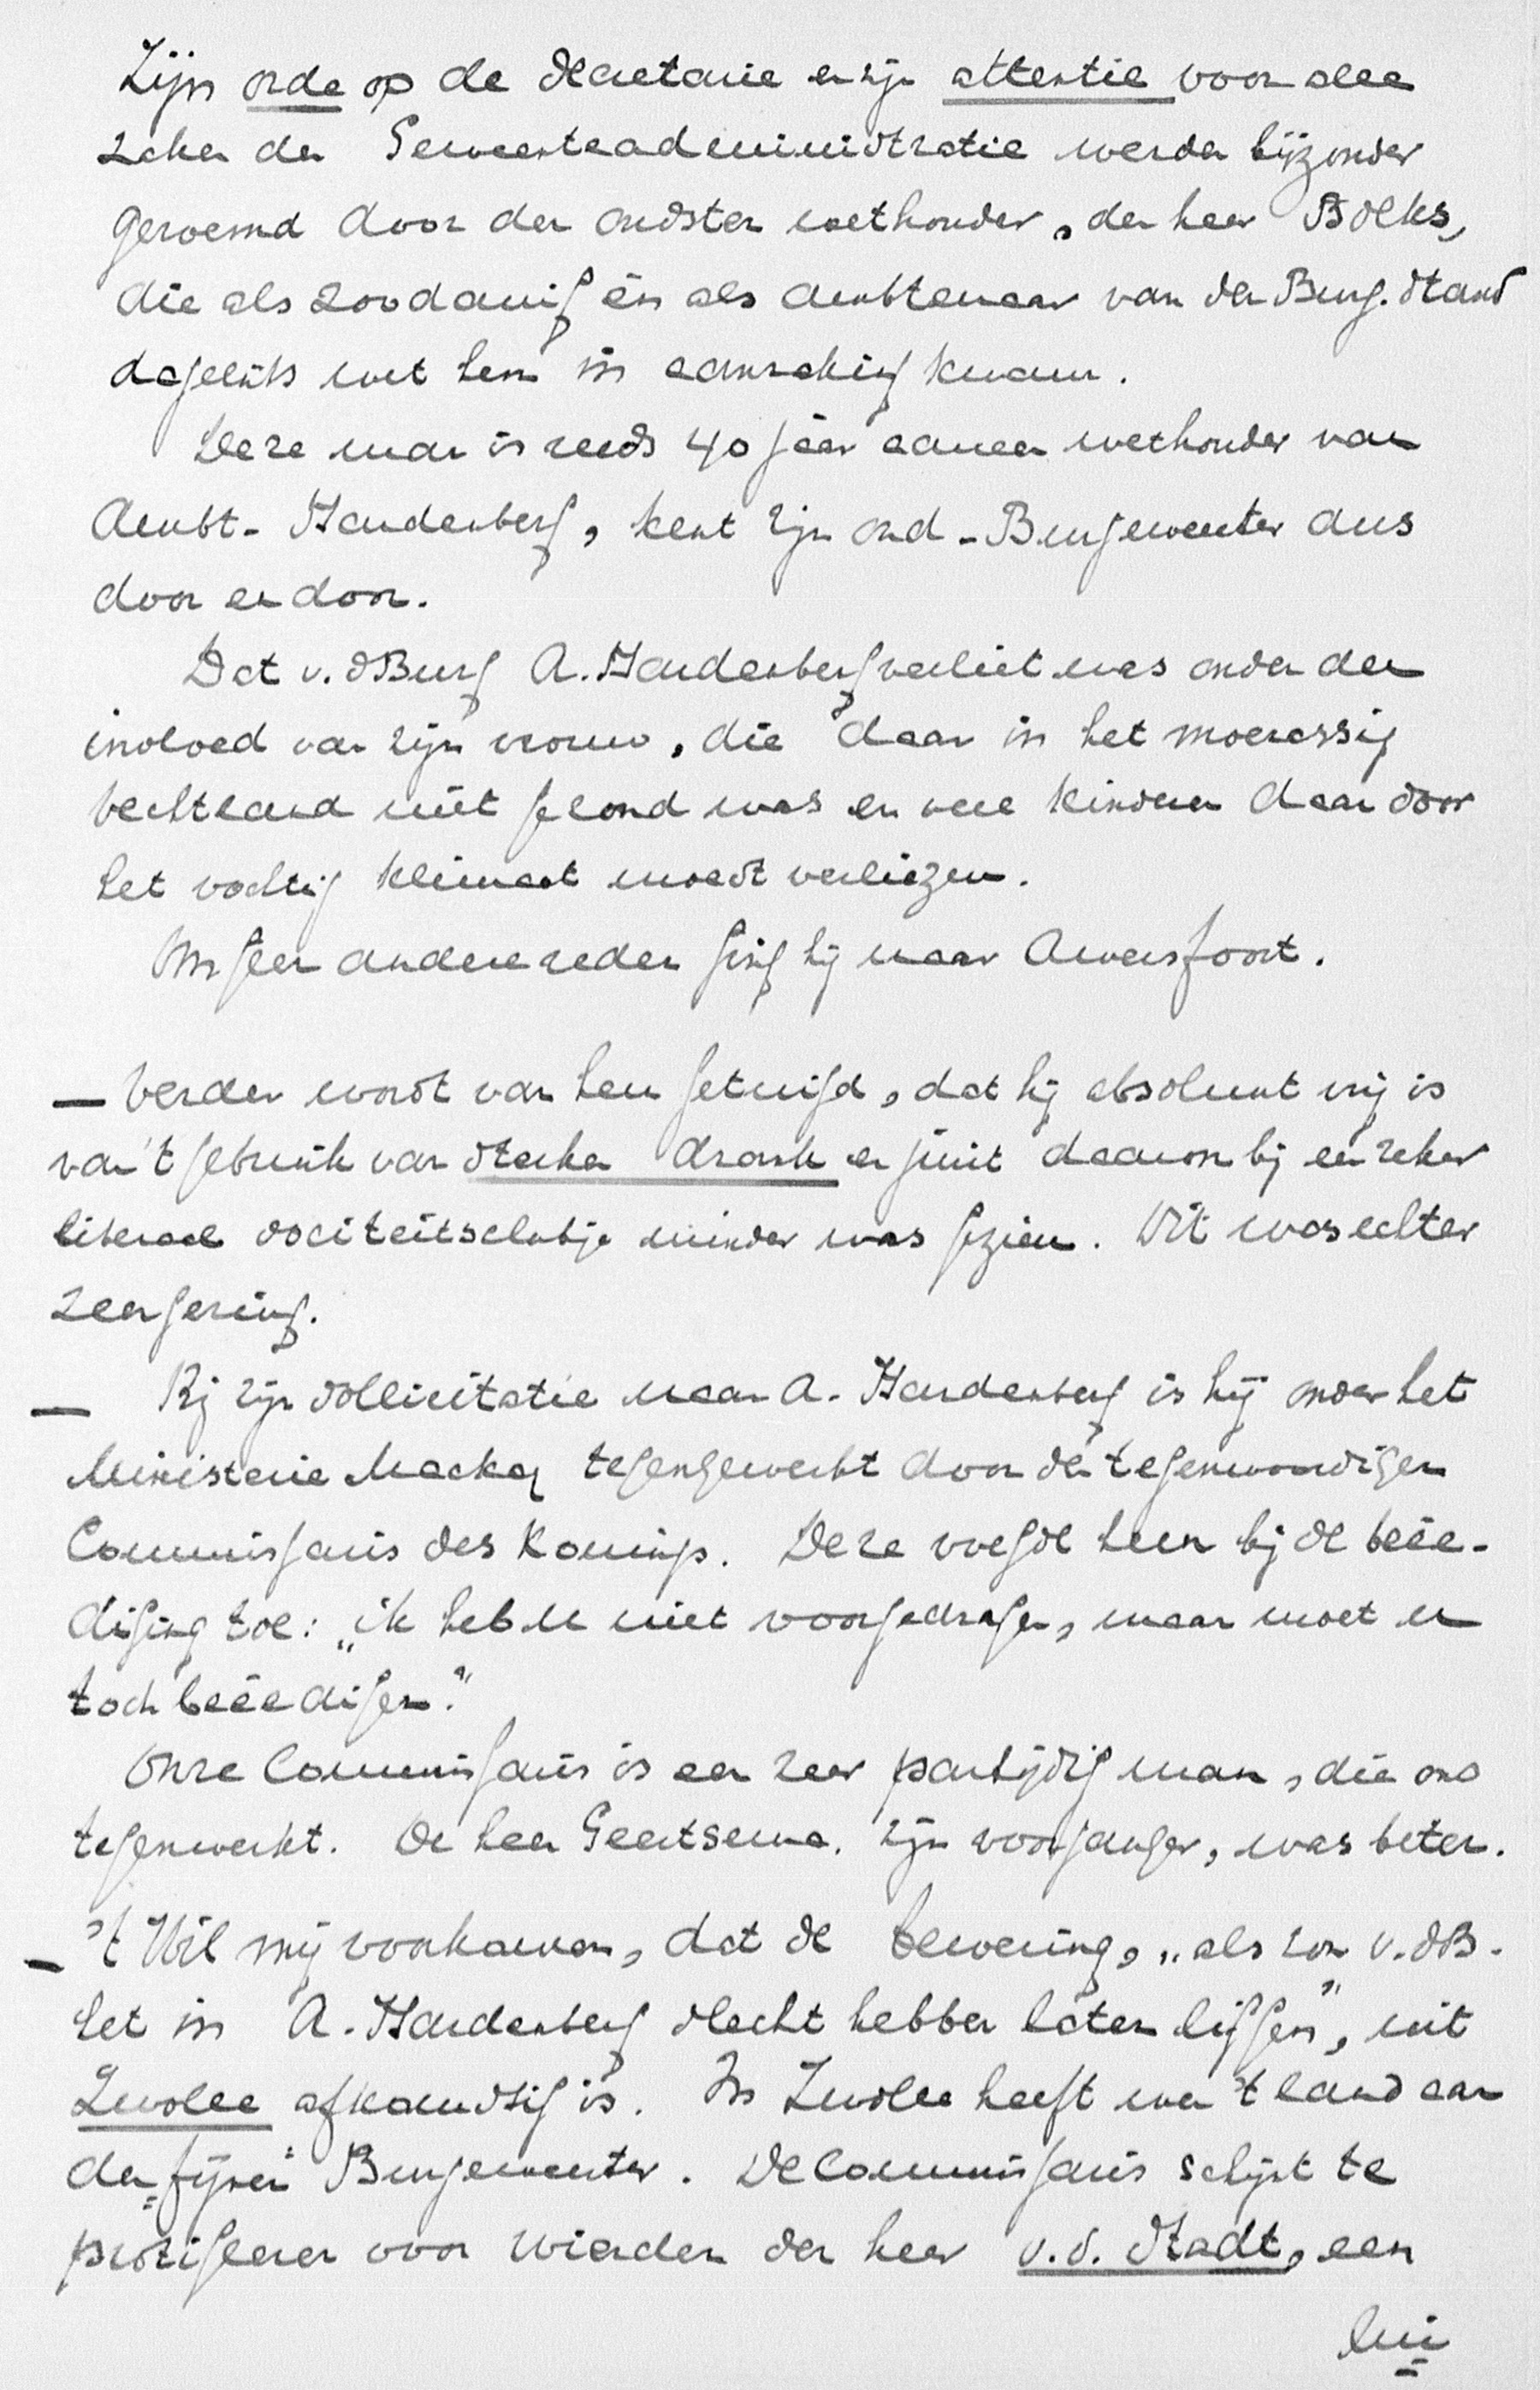 Zijn orde op de secretarie en zijn attentie voor alle
zaken der Gemeenteadministratie werden bijzonder
geroemd door den oudsten wethouder, den heer Bolks,
die als zoodanig én als ambtenaar van den Burg. Stand
dagelijks met hem in aanraking kwam.
Deze man is reeds 40 jaar aaneen wethouder van
Ambt-Hardenberg, kent zijn oud-Burgemeester dus
door en door.
Dat v.d Burg A. Hardenberg verliet was onder den
invloed van zijn vrouw, die daar in het moerassig
Vechtland niet gezond was en vele kinderen daar door
het vochtig klimaat moest verliezen.
Om geen andere reden ging hij naar Amersfoort.
— Verder wordt van hem getuigd, dat hij absoluut vrij is
van 't gebruik van sterken drank en juist daarom bij een zeker
liberaal sociteitsclubje minder was gezien. Dit was echter
zeer gering.
— Bij zijn sollicitatie naar A. Hardenberg is hij onder het
Ministerie Mackay tegengewerkt door den tegenwoordigen
Commissaris des Konings. Deze voegde hem bij de beëe-
diging toe: „ik heb u niet voorgedragen, maar moet u
toch beëedigen."
Onze Commissaris is een zeer partijdig man, die ons
tegenwerkt. De heer Geertsema, zijn voorganger, was beter.
— 't Wil mij voorkomen, dat de bewering, „als zou v.dB.
het in A. Hardenberg slecht hebben laten liggen", uit
Zwolle afkomstig is. In Zwolle heeft men 't land aan
den „fijnen" Burgemeester. De Commissaris schijnt te
protegeeren voor Wierden den heer v.d. Stadt, een
lui